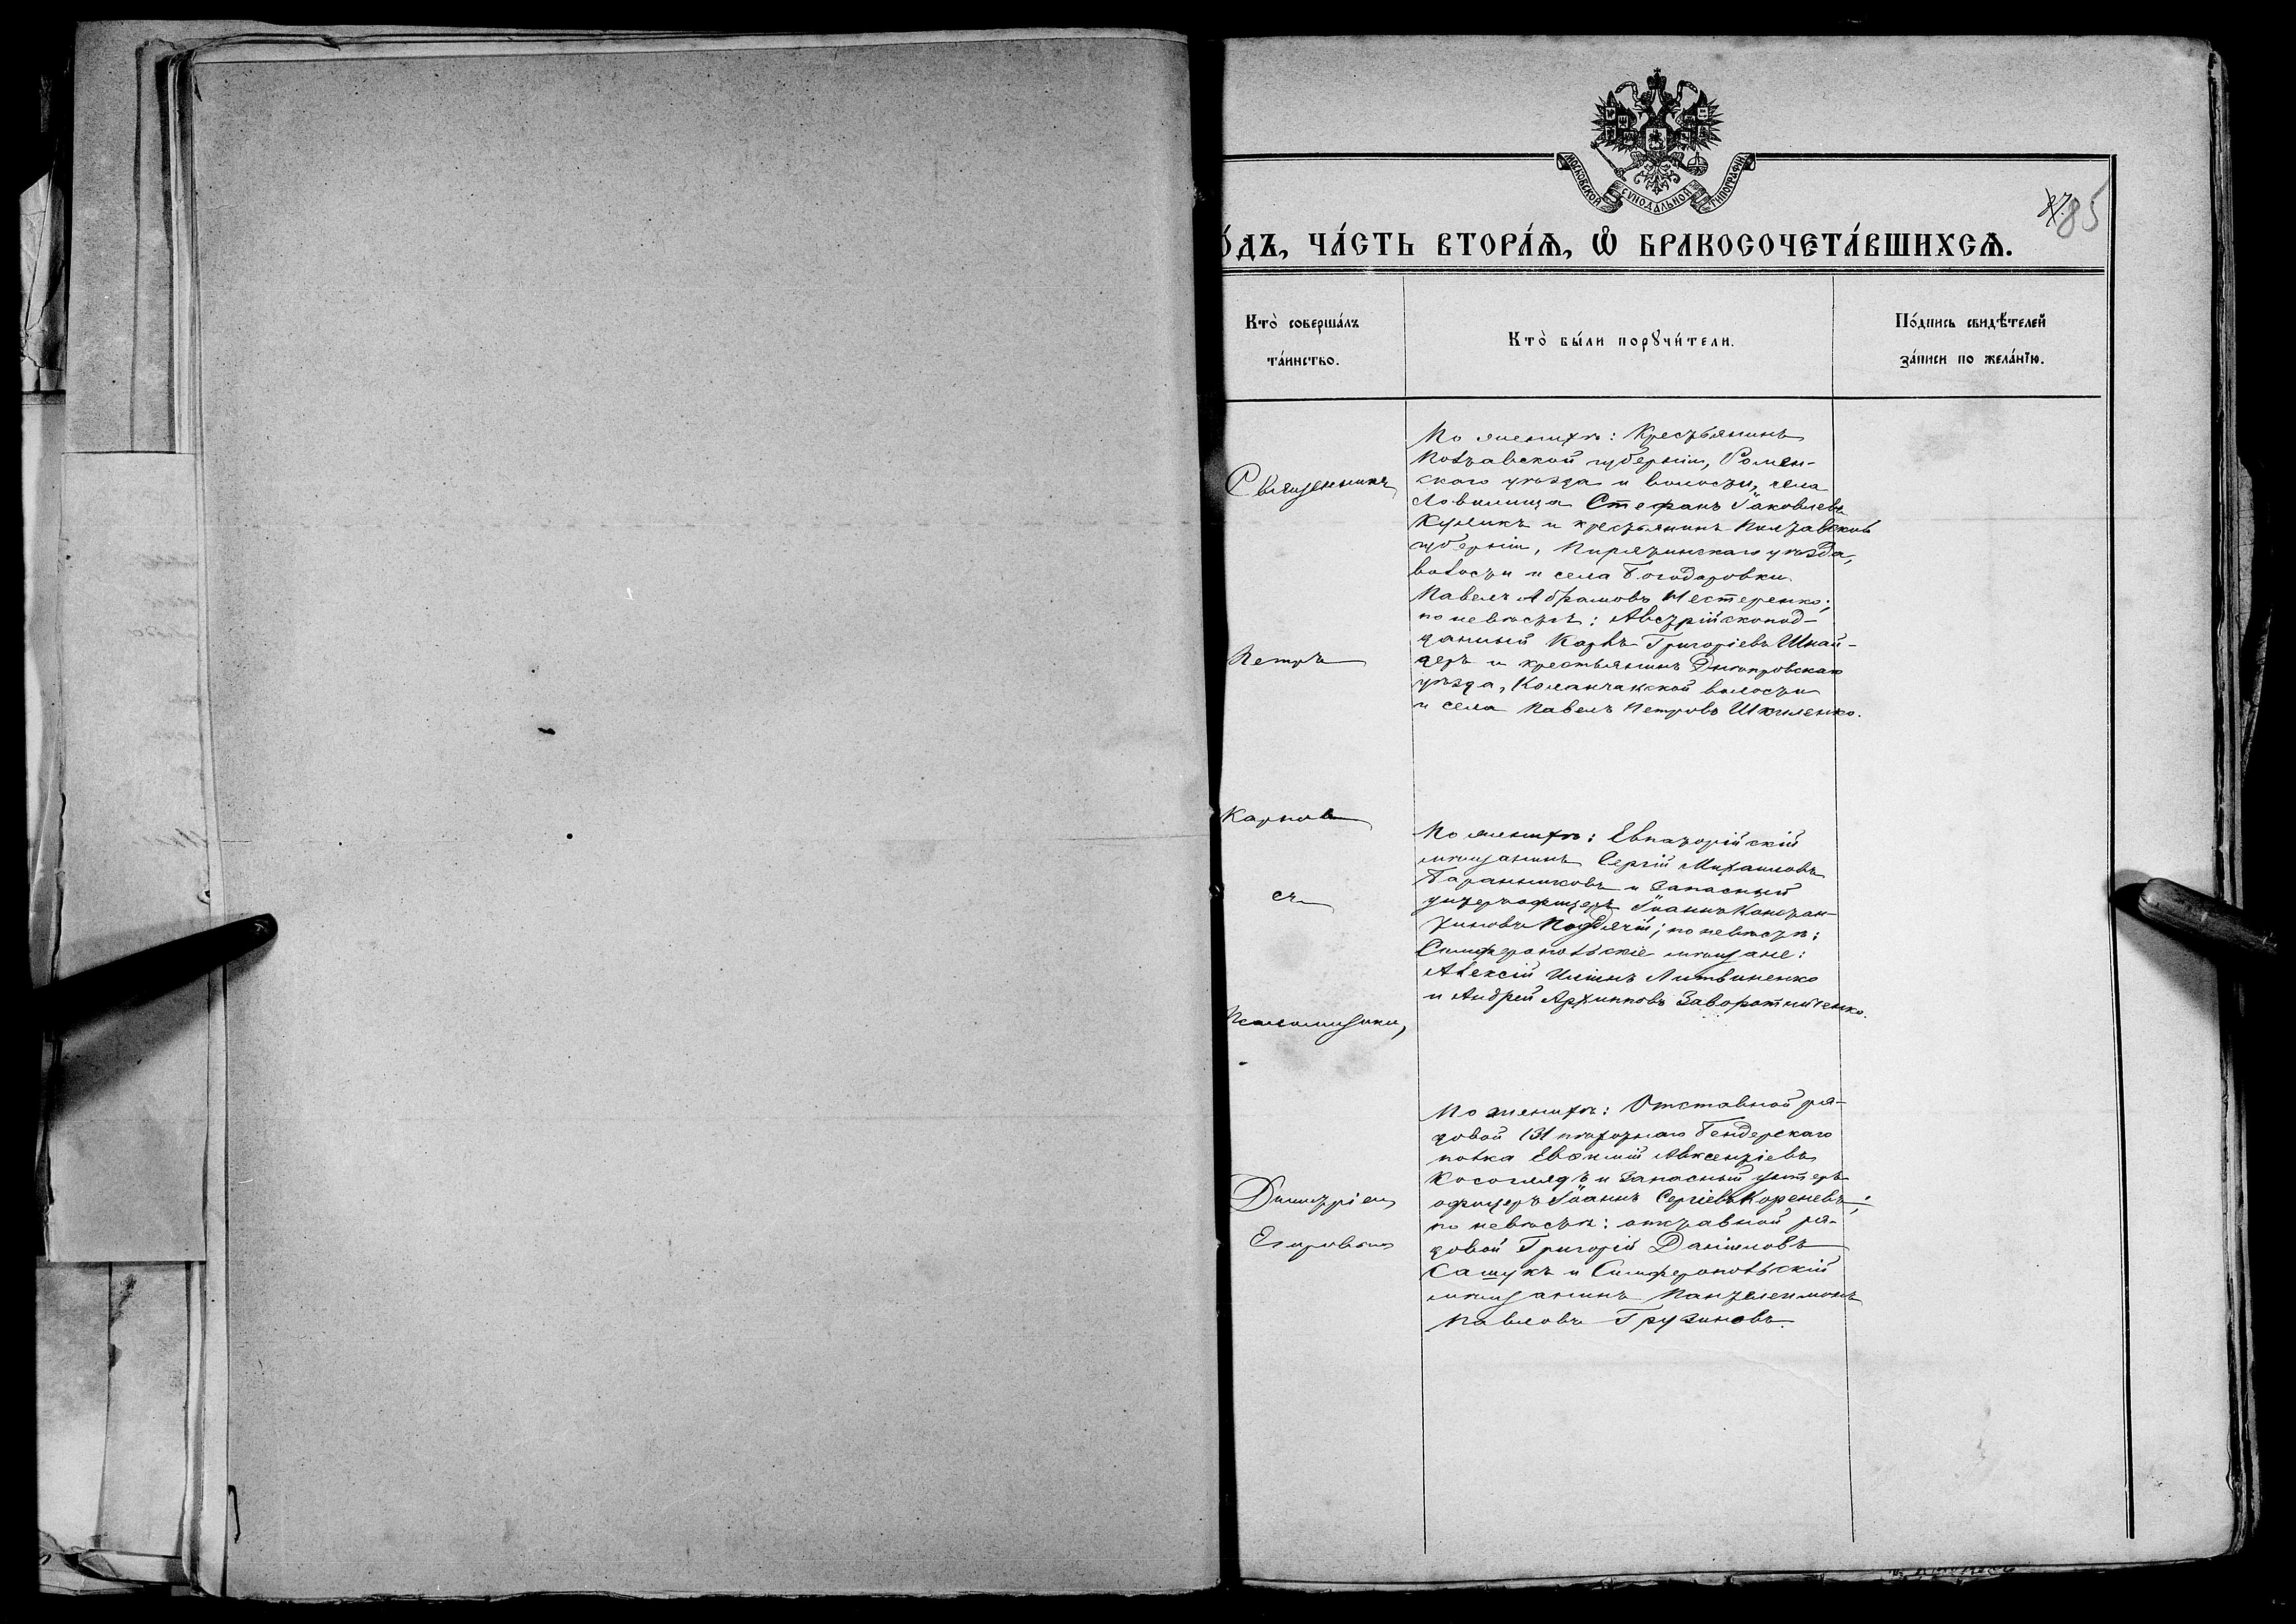 МОСКОВСКОЙ СѴНОДАЛЬНОЙ ТИПОГРАФІИ
85
О́ДЪ, ЧА́СТЬ ВТОРА́Ѧ, Ѽ БРАКОСОЧЕТА́ВШИХСѦ.
Кто̀ соверша́лъ
та́инство.
Кто̀ бы́ли порꙋчи́тели.
По́дпись свидѣ́телей
за́писи по жела́нїю.
Священникъ
Петръ
Карпов
съ
Псаломщикомъ
Димитріем
Егоровым
По женихѣ: Крестьянинъ
Полтавской губерніи, Ромен-
скаго уѣзда и волости, села
Стефанъ Іаковлевъ
Куликъ и крестьянинъ Полтавской
губерніи, Пирятинскаго уѣзда,
волости и села Богодаровки
Павелъ Абрамовъ Нестеренко;
по невѣстѣ: Австрійскопод-
данный Карлъ Григоріевъ Шнай-
деръ и крестьянинъ Днѣпровскаго
уѣзда, Каланчакской волости
и села Павелъ Петровъ Шкиленко.
По женихѣ: Евпаторійскій
мѣщанинъ Сергій Михаиловъ
Баранниковъ и запасный
унтерофицеръ Іоаннъ Констан-
тиновъ; по невѣстѣ:
Симферопольскіе мѣщане:
Алексій Иліинъ Литвиненко
и Андрей Архипповъ Заворотниченко.
По женихѣ: Отставной ря-
довой 131 пѣхотнаго Бендерскаго
полка Евѳимій Авксентіевъ
Косоглядъ и запасный унтеръ
офицеръ Іоаннъ Сергіевъ Кореневъ;
по невѣстѣ: отставной ря-
довой Григорій Даніиловъ
Сашукъ и Симферопольскій
мѣщанинъ Пантелеимонъ
Павловъ Грузиновъ.